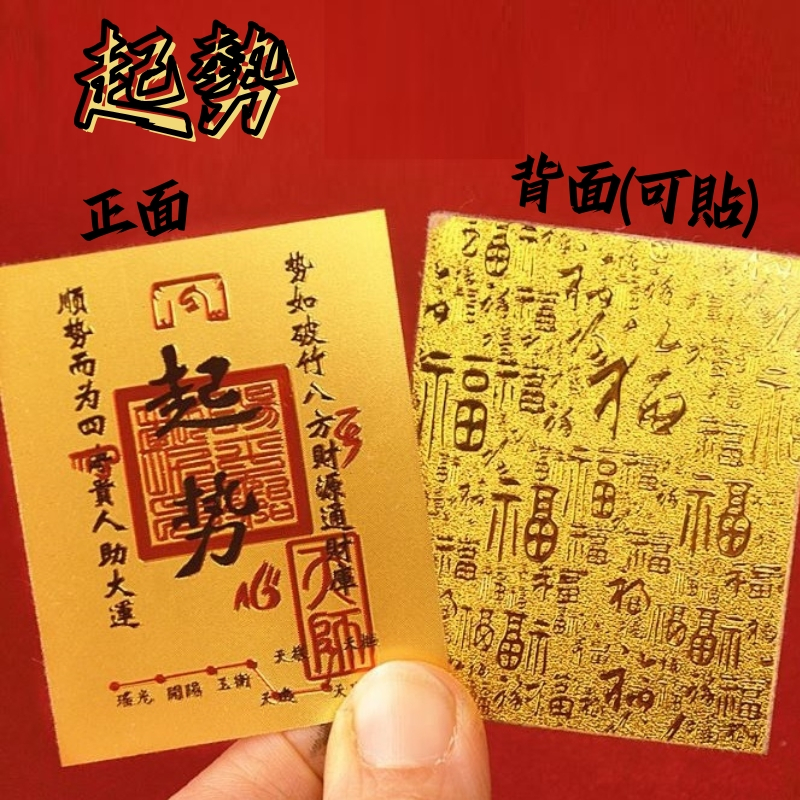 起勢
正面
背面(可貼)
势如破竹八方財源通財庫
起势
順势而为四 貴人助大運
心
天師
瑤光 開陽 玉衡 天權 天璣
福 福 福 福 福 福 福 福